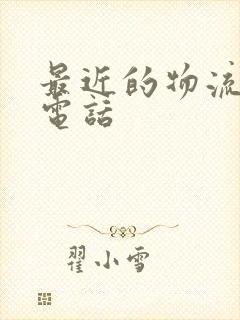 最近的物流
電話
翟小雪